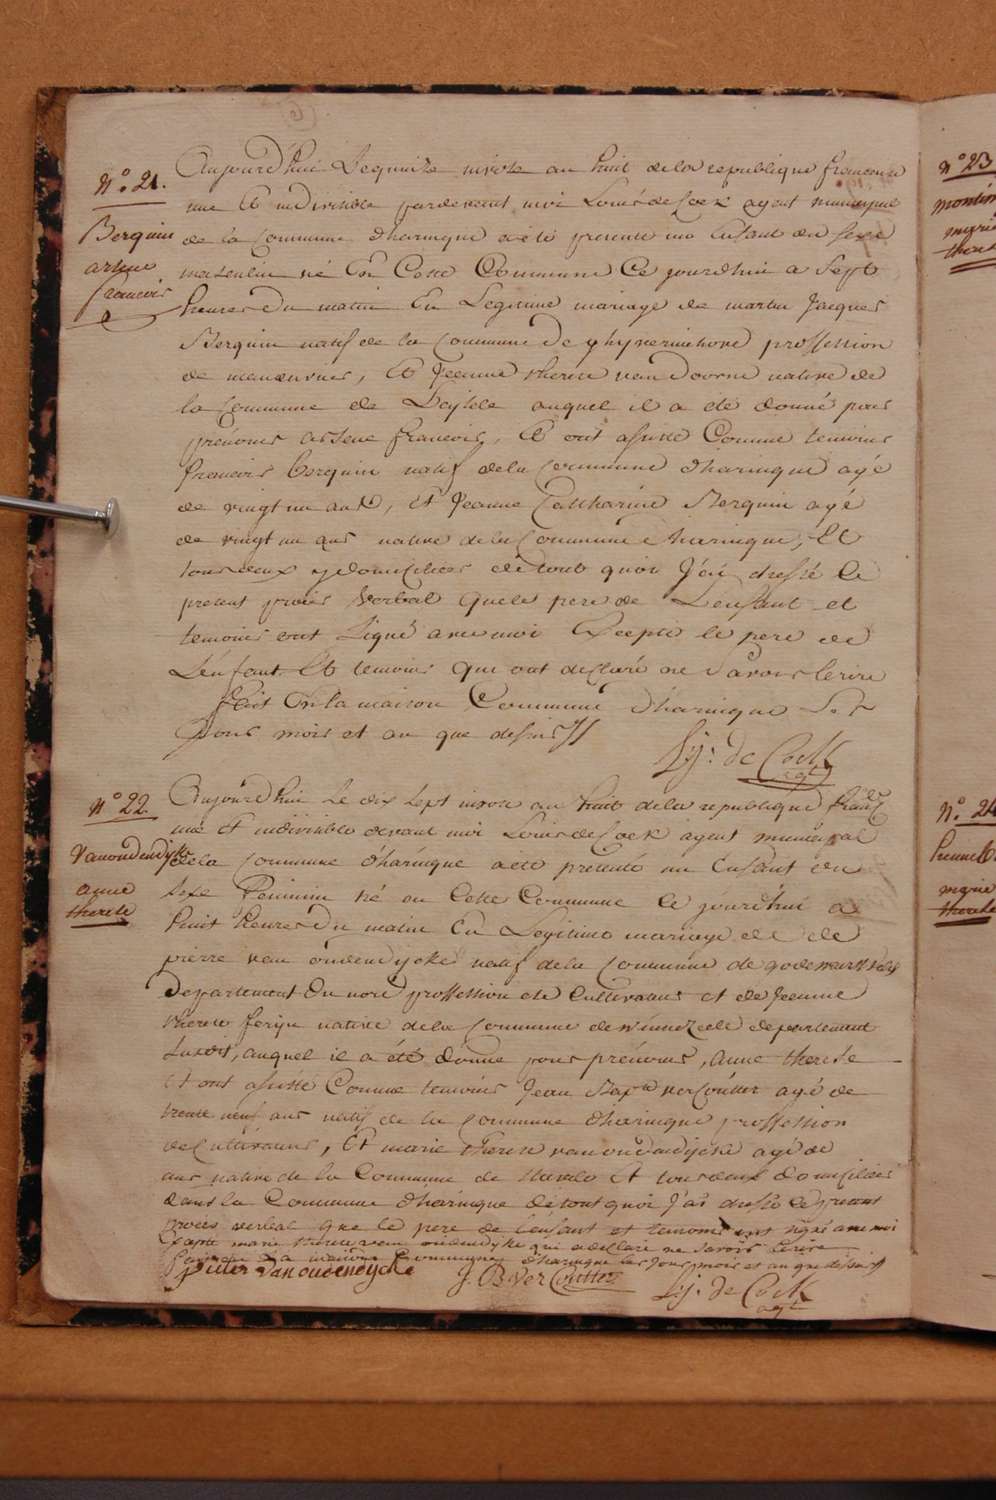 N.° 21.
Berquin
arsene
francois
Aujourd'hui Le quinze nivose an huit de la republique francaise
une Et indivisible pardevant moi Louis de Cock agent municipal
de la Commune d'haringue a eté presenté un Enfant du sexe
masculin né En Cette Commune Ce jourd'hui a Sept
heures Du matin En Legitime mariage de martin Jacques
Berquin natif de la Commune De ghyverinchove proffession
de manœuvrier, Et Jeanne therese van Doorne native de
la Commune de Leysele auquel il a eté donné pour
prénoms arsene francois, Et ont assisté Comme temoins
francois berquin natif de la Commune d'haringue agé
de vingt un ans, et Jeanne Catharine Berquin agé
de vingt un ans native de la Commune d'haringue, Et
tous deux y domicilies de tout quoi J'ai dressé le
present procès verbal que le pere de L'enfant et
temoins ont Signé avec moi Excepté le pere de
L'enfant Et temoins que ont declaré ne Savoir Ecrire
fait En la maison Commune D'haringue Les
jour mois et an que dessus
L.j: de Cock
agt
N.° 22.
Vanoudendycke
anne
therese
Aujourd'hui Le dix sept nivose an huit de la republique franc
une Et indivisible devant moi Louis de Cock agent municipal
de la Commune d'haringue a eté presenté un Enfant du
sexe Feminin né en Cette Commune Ce jourd'hui a
huit heures Du matin En Legitime mariage de de
pierre van oudendycke natif de la Commune de godewaersvelde
Departement Du nord proffession de Cultivateur et de Jeanne
therese feryn native de la Commune de winnezeele departement
susdit, auquel il a été donné pour prénoms, anne therese
Et ont assisté Comme temoins Jean Bapte verCoutter agé de
trente neuf ans natif de la Commune d'haringue proffession
de Cultivateur, Et marie therese vanoudendycke agé de
ans native de la Commune de Et tous deux Domiciliés
dans la Commune d'haringue de tout quoi J'ai dressé le present
procès verbal que le pere de l'enfant et temoins ont signé avec moi
Excepté marie therese van oudendyke qui a declaré ne Savoir Ecrire
fait en la maison Commune d'haringue les jour mois et an que dessus
pieter Van oudendycke
J. B. Ver Coutter
L.j: de Cock
agt
N.° 23
therese
N.° 24
therese